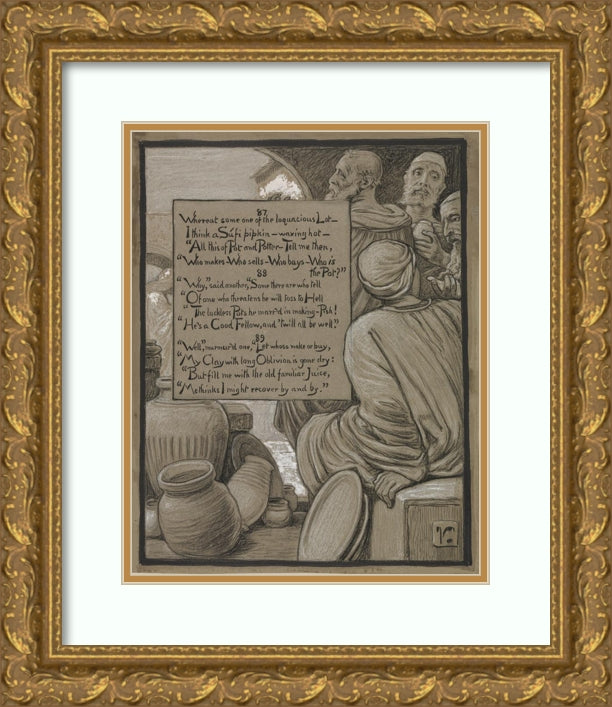 87
Whereat some one of the loquacious Lot—
I think a Súfi pipkin—waxing hot—
"All this of Pot and Potter—Tell me then,
"Who makes—Who sells—Who buys—Who is
the Pot?"
88
"Why," said another, "Some there are who tell
"Of one who threatens he will toss to Hell
"The luckless Pots he marr'd in making—Pish!
"He's a Good Fellow, and 'twill all be well."
89
"Well," murmur'd one, "Let whoso make or buy,
"My Clay with long Oblivion is gone dry:
"But fill me with the old familiar Juice,
"Methinks I might recover by and by."
V